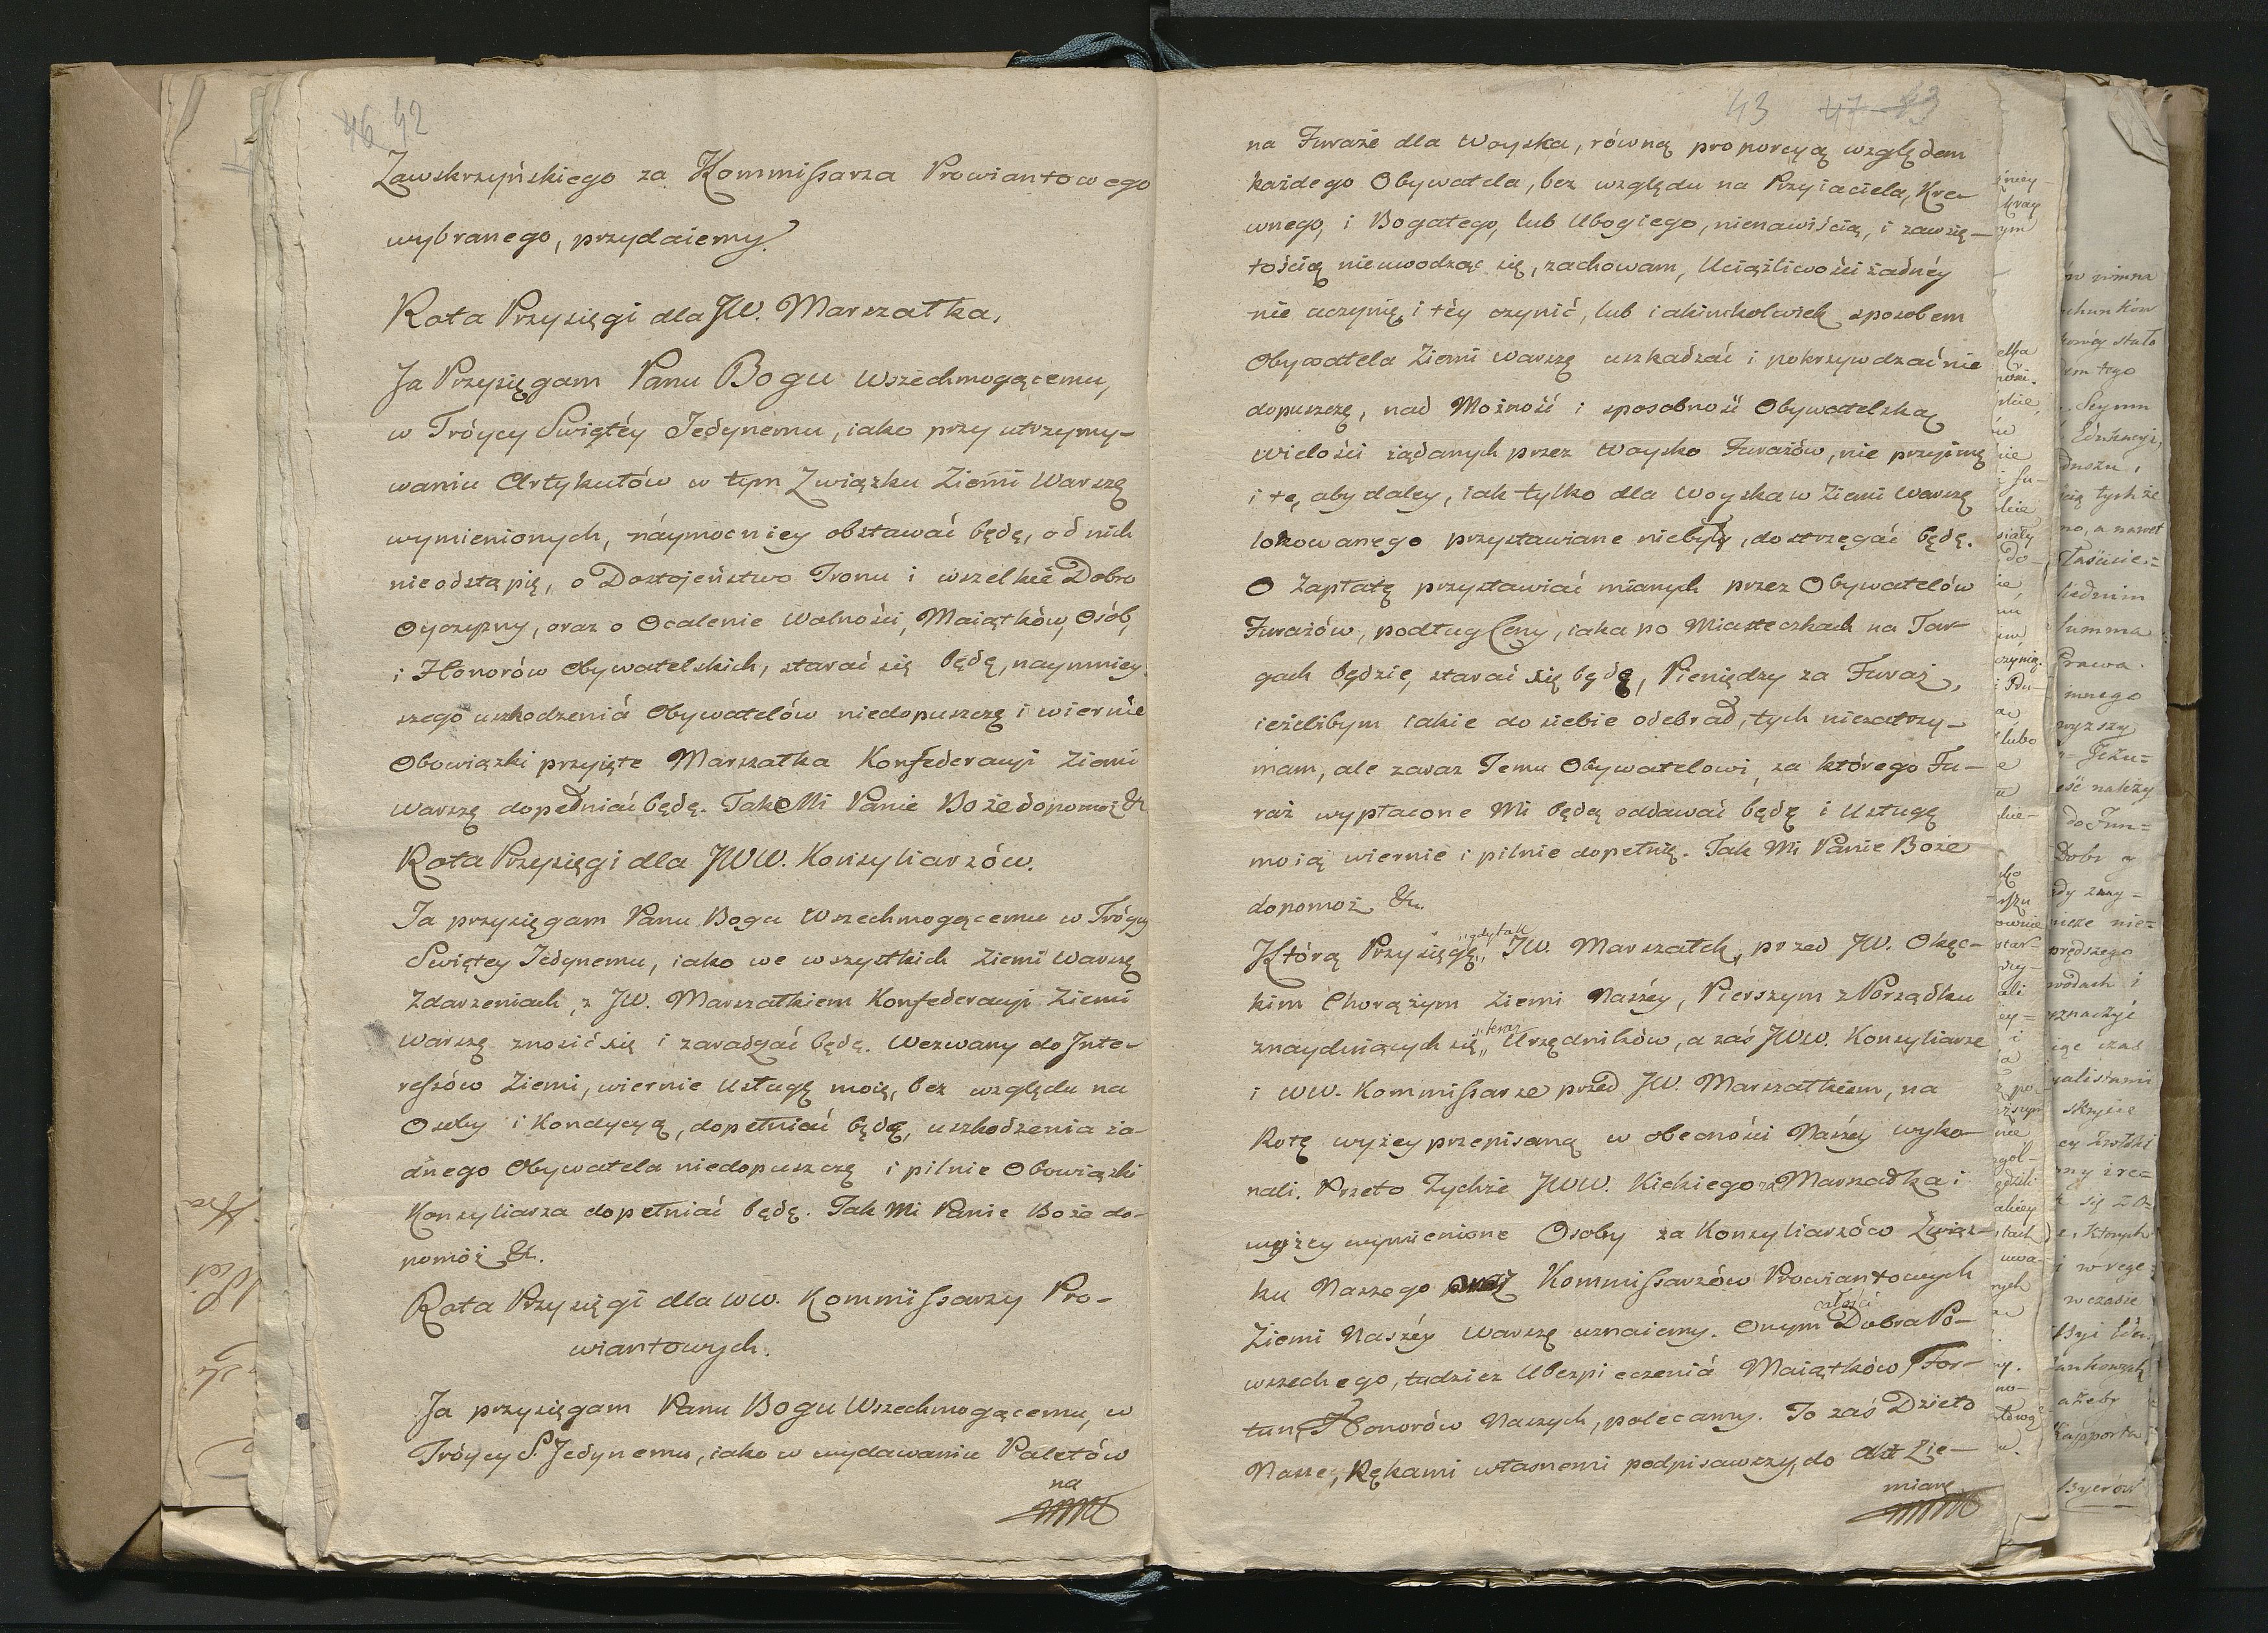 46 42
Zawskrzyńskiego za Kommissarza Prowiantowego
wybranego, przydaiemy.
Rota Przysięgi dla JW. Marszałka.
Ja Przysięgam Panu Bogu Wszechmogącemu,
w Tróycy Swiętéy Jedynemu, iako przy utrzymy-
waniu Artykułów w tym Związku Ziemi Warszę
wymienionych, náymocniey obstawać będę, od nich
nieodstąpię, o Dostojeństwo Tronu i wszelkie Dobro
Oyczyzny, oraz o Ocalenie Wolności, Maiątków, Osób,
i Honorów Obywatelskich, starać się będę, naymniey-
szego uszkodzeniá Obywatelów niedopuszczę i wiernie
Obowiązki przyięte Marszałka Konfederacyi Ziemi
Warszę dopełniać będę. Tak Mi Panie Boże dopomoż &c
Rota Przysięgi dla JWW. Konsyliarzów.
Ja przysięgam Panu Bogu Wszechmogącemu w Tróycy
Swiętey Jedynemu, iako we wszystkich Ziemi Warszę
Zdarzeniach, z JW. Marszałkiem Konfederacyi Ziemi
Warszę znosić się i zaradzać będę. Wezwany do Inte-
ressów Ziemi, wiernie Usługę moię, bez względu na
Osoby i Kondycyą, dopełniać będę, uszkodzenia ża-
dnego Obywatela niedopuszczę i pilnie Obowiązki
Konsyliarza dopełniać będę. Tak Mi Panie Boże do-
pomóż &c.
Rota Przysięgi dla WW. Kommissarzy Pro-
wiantowych.
Ja przysięgam Panu Bogu Wszechmogącemu, w
Tróycy S. Jedynemu, iako w wydawaniu Paletów
na
43 47 43
na Furaże dla Woyska, równą proporcyą względem
każdego Obywatela, bez względu na Przyiaciela, Kre-
wnego, i Bogatego, lub Ubogiego, nienawiścią, i zawzię-
tością nieuwodząc się, zachowam, Uciążliwości żadnéy
nie uczynię i téy czynić, lub iakimkolwiek sposobem
Obywatela Ziemi Warszę uszkadzać i pokrzywdzać nie
dopuszczę, nad Możność i sposobność Obywatelską
wielości żądanych przez Woysko Furażów, nie przyimę
i te, aby daley, iak tylko dla Woyska w Ziemi Warszę
lokowanego przystawiane niebyły, dostrzegać będę.
O Zapłatę przystawiać mianych przez Obywatelów
Furażów, podług Ceny, iaka po Miasteczkach na Tar-
gach będzie, starać się będę, Pieniędzy za Furaż,
ieżelibym iakie do siebie odebrał, tych niezatrzy-
mam, ale zaraz Temu Obywatelowi, za którego Fu-
raż wypłacone Mi będą oddawać będę i Usługę
moią wiernie i pilnie dopełnię. Tak Mi Panie Boże
dopomoż &c.
gdy tak
Którą Przysięgę, JW. Marszałek, przed JW. Okęc-
kim Chorążym Ziemi Naszéy, Pierszym z Porządku
teraz
znayduiących się Urzędników, a zaś JWW. Konsyliarze
i WW. Kommissarze przed JW. Marszałkiem, na
Rotę wyżey przepisaną w obecności Naszéy wyko-
nali. Przeto Tychże JWW. Kickiego za Marszałka i
wyżey wymienione Osoby za Konsyliarzów Związ-
ku Naszego oraz Kommissarzów Prowiantowych
Ziemi Naszéy Warszę uznaiemy. Onym
całości
Dobra Po-
wszechego, tudzież Ubezpieczeniá Maiątków For-
tun, Honorów Naszych, polecamy. To zaś Dzieło
Nasze, Rękami własnemi podpisawszy, do Akt Zie-
miań